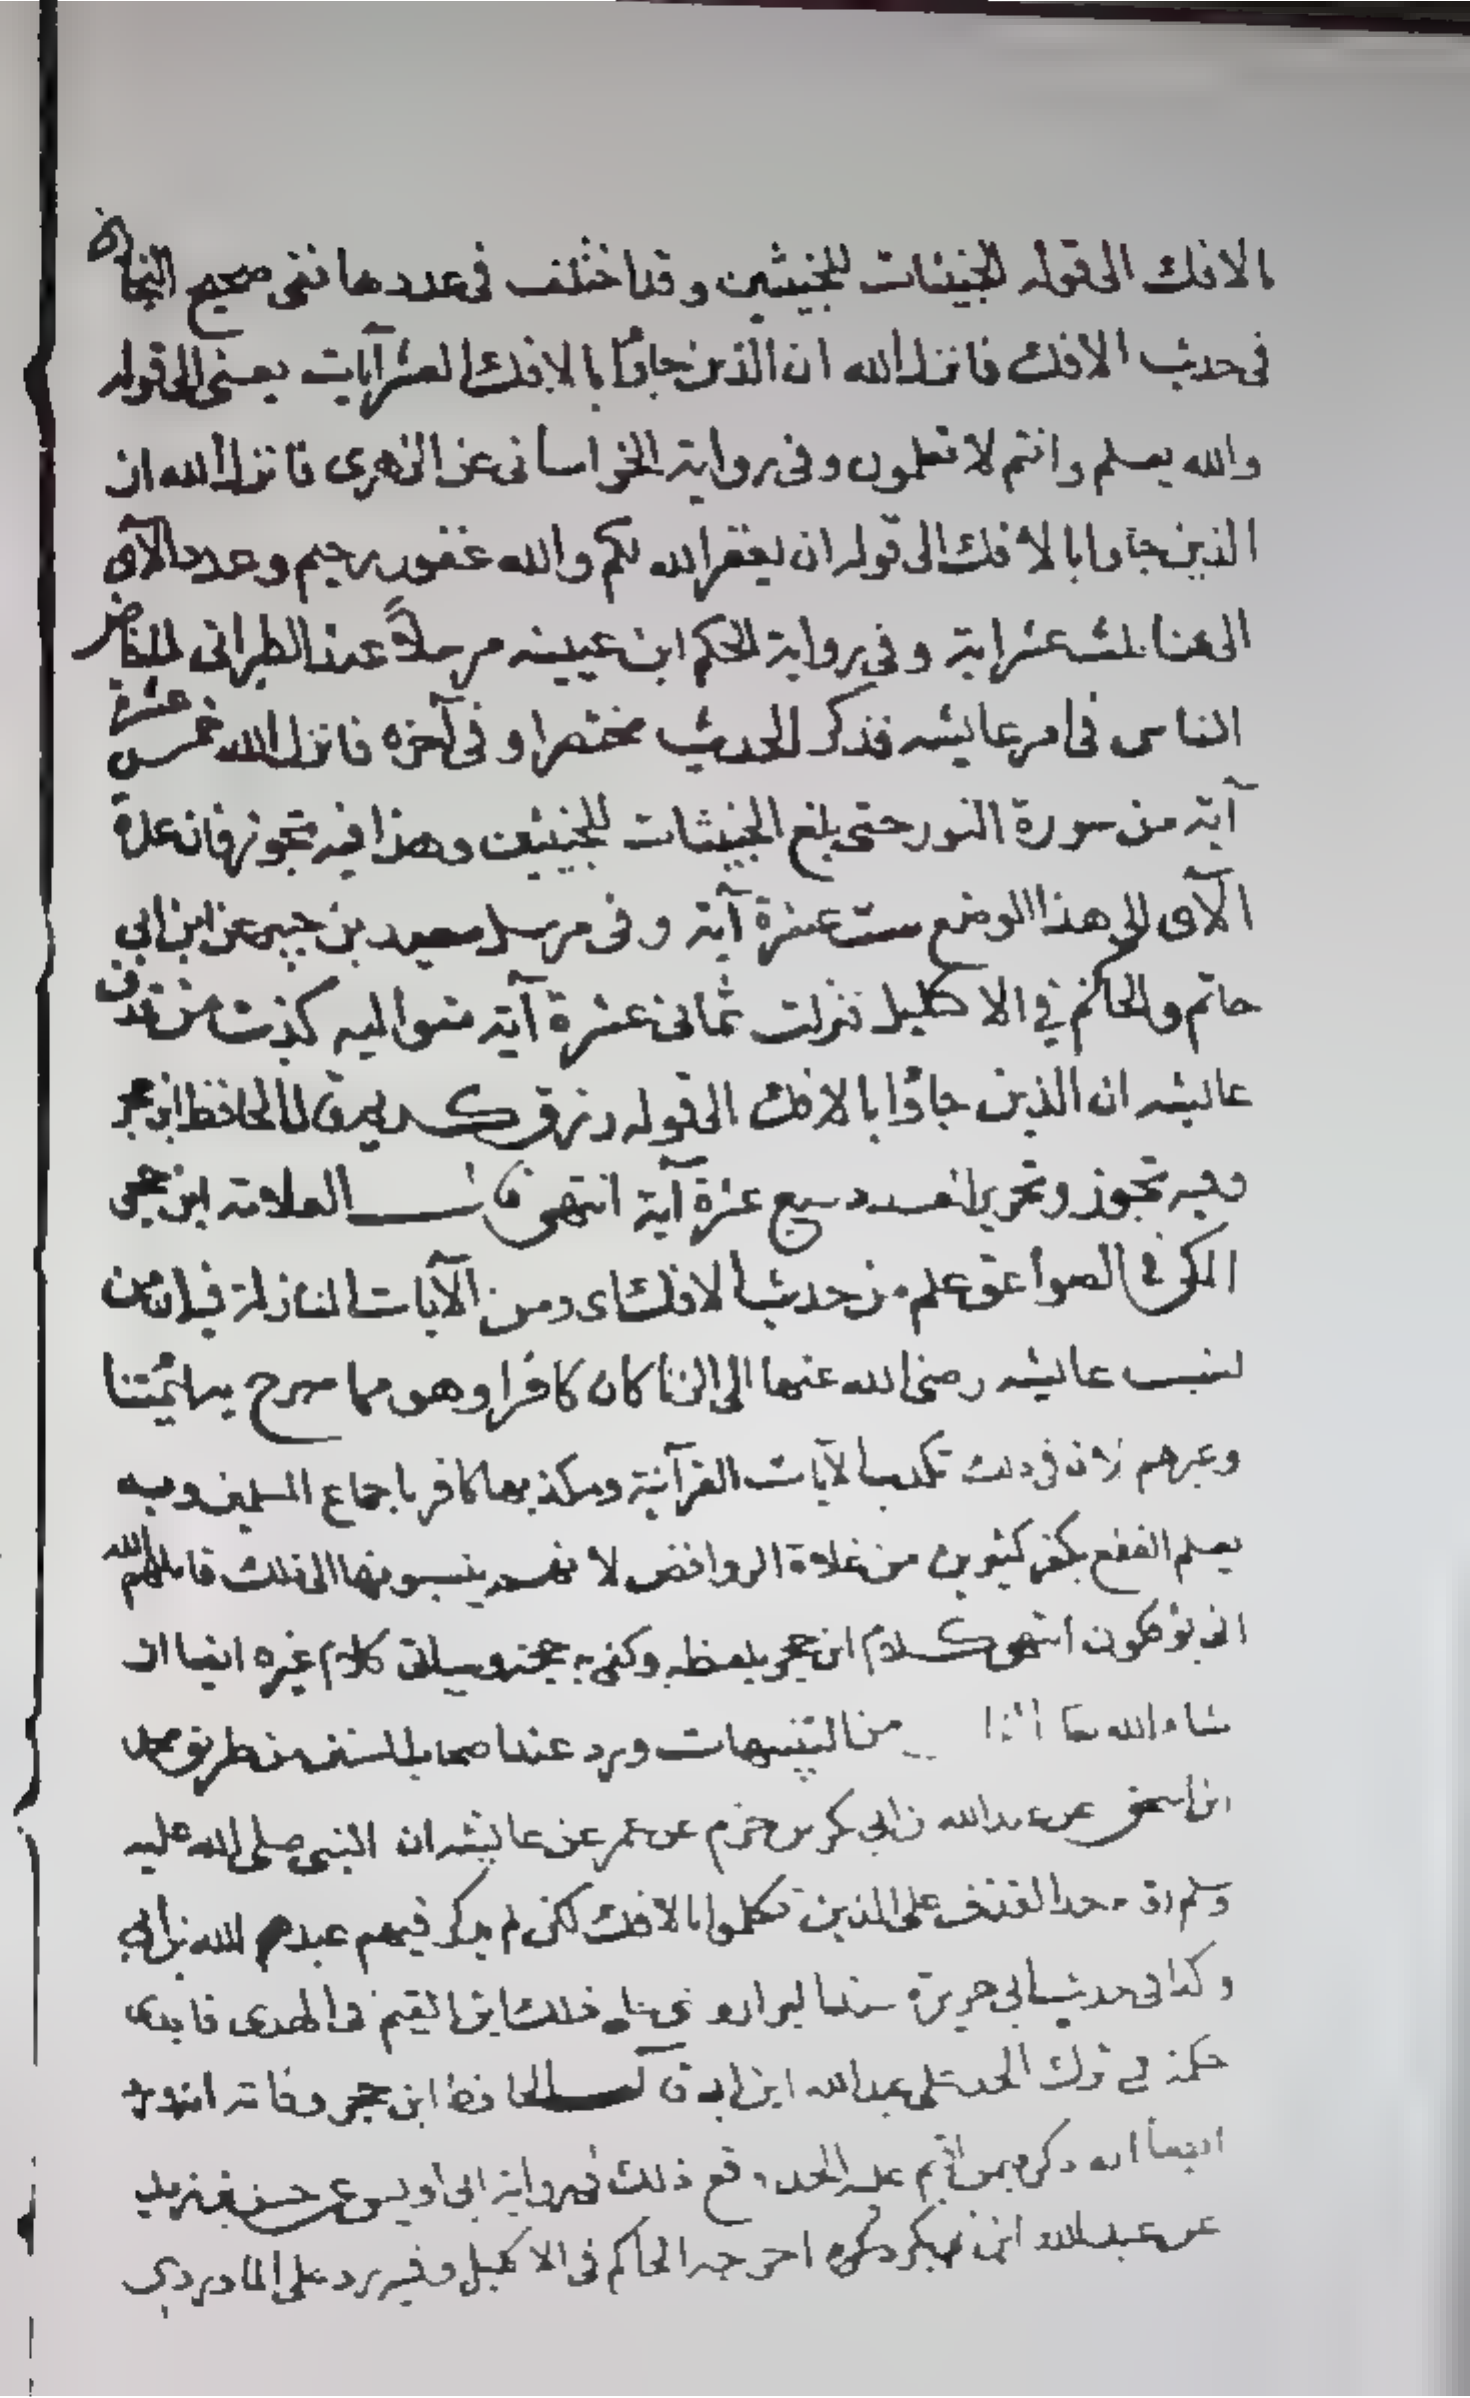 بالافك الى قوله الخبيثات للخبيثين وقد اختلف فى عددها ففى صحيح البخارى
فى حديث الافك فانزل الله ان الذين جاؤا بالافك العشر آيات يعنى الى قوله
والله يعلم وانتم لا تعلمون وفى رواية الخراسانى عن الزهرى فانزل الله ان
الذين جاوا بالافك الى قوله ان يغفر الله لكم والله غفور رحيم وعدد الآى
الى هنا ثلث عشر اية وفى رواية الحكم ابن عيينه مرسلاً عند الطبرانى لما خاض
الناس فى امر عايشه فذكر الحديث مختصرا وفى آخره فانزل الله خمس عشرة
آية من سورة النور حتى بلغ الخبيثات للخبيثين وهذا فيه تجوز فان عدة
الآى الى هذا الوضع ست عشرة آية وفى مرسل سعيد بن جبير عن ابن ابي
حاتم والحاكم في الاكليل فنزلت ثمانى عشرة آية متواليه كذبت من قذف
عايشه ان الذين جاؤا بالافك الى قوله ورزق كريم قال الحافظ ابن حجر
وفيه تجوز وتحرير العدد سبع عشرة آية انتهى قال العلامة ابن حجر
المكى في الصواعق علم من حديث الافك اى ومن الآيات النازلة فيه ان من
نسب عايشه رضى الله عنها الى الزنا كان كافرا وهو مما صرح به ائمتنا
وغيرهم لان فى ذلك تكذيب الآيات القرآنية ومكذبها كافر باجماع المسلمين وبه
يعلم القطع بكفر كثيرين من غلاة الروافض لانهم ينسبونها الى ذلك قاتلهم الله
انى يؤفكون انتهى كلام ابن حجر بلفظه وكفى به حجة وسياتى كلام غيره ايضا ان
شاء الله من التنبيهات ورد عند اصحاب السنن من طريق محمد
ابن اسحق عن عبد الله بن ابى بكر بن حزم عن عمر عن عايشه ان النبى صلى الله عليه
وسلم حد القذف على الذين تكلموا بالافك لكن لم يذكر فيهم عبد الله بن أبي
وكذا فى حديث ابى هريرة عند البزار و ذلك ابن القيم فى الهدى فابدى
حكمة في ترك الحد على عبد الله ابن ابى قال الحافظ ابن حجر وفاته انه ورد
ايضا انه ذكر فيمن اقيم عليه الحد وقع ذلك فى رواية ابى اويس عن حسن بن زيد
عن عبد الله ابن ابى بكر اخرجه الحاكم فى الاكليل وفيه رد على الماوردي